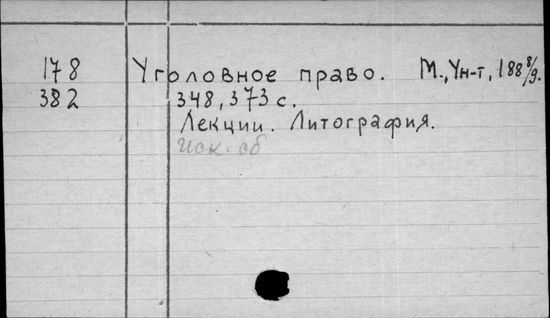 178 Уголовное право. М., Ун-т, 188 8/9.
382 348, 373 с.
Лекции. Литография.
Иск. сб